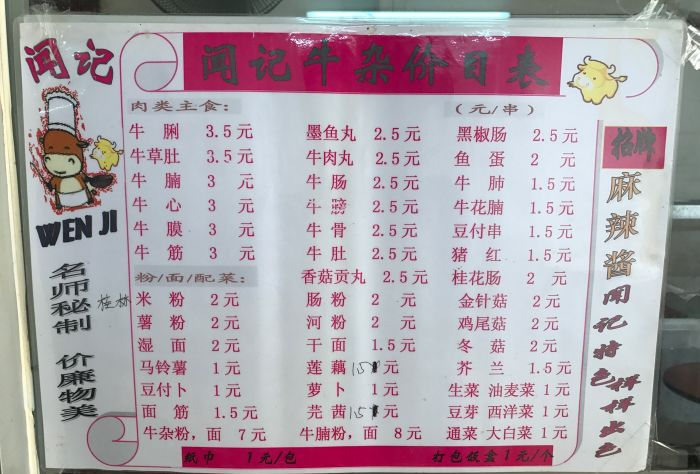 闻记
闻记牛杂价目表
肉类主食：
（元/串）
牛 脷 3.5元 墨鱼丸 2.5元 黑椒肠 2.5元
牛草肚 3.5元 牛肉丸 2.5元 鱼 蛋 2 元
牛 腩 3 元 牛 肠 2.5元 牛 肺 1.5元
牛 心 3 元 牛 膀 2.5元 牛花腩 1.5元
牛 膜 3 元 牛 骨 2.5元 豆付串 1.5元
牛 筋 3 元 牛 肚 2.5元 猪 红 1.5元
粉/面/配菜： 香菇贡丸 2.5元 桂花肠 2 元
桂林 米 粉 2元 肠 粉 2 元 金针菇 2元
薯 粉 2元 河 粉 2 元 鸡尾菇 2元
湿 面 2元 干 面 1.5元 冬 菇 2元
马铃薯 1元 莲 藕 1.5元 芥 兰 1.5元
豆付卜 1元 萝 卜 1元 生菜 油麦菜 1元
面 筋 1.5元 芫 茜 1.5元 豆芽 西洋菜 1元
牛杂粉，面 7元 牛腩粉，面 8元 通菜 大白菜 1元
纸巾 1元/包 打包饭盒1元/个
WEN JI
名师秘制
价廉物美
招牌
麻辣酱
闻记特色
拼拼出色